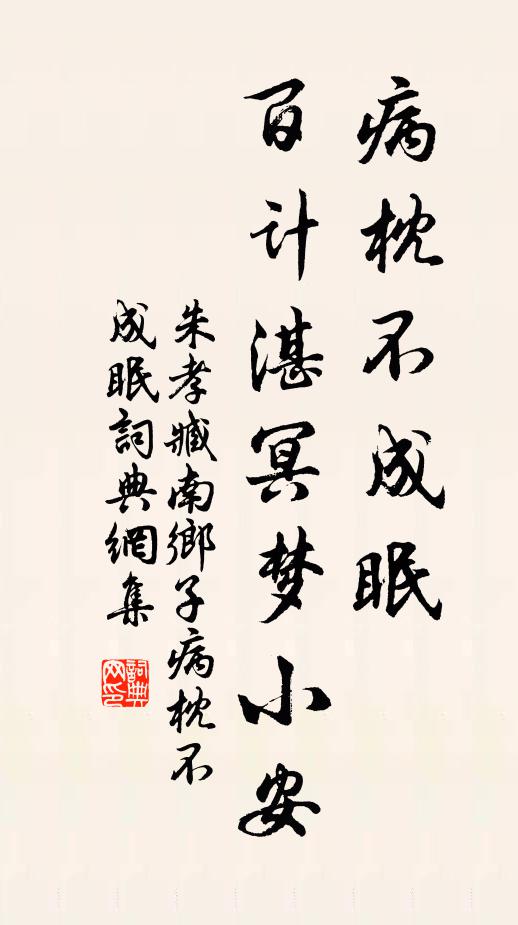 病枕不成眠
百计湛冥梦小安
朱孝臧南鄉子病枕不
成眠詞典網集